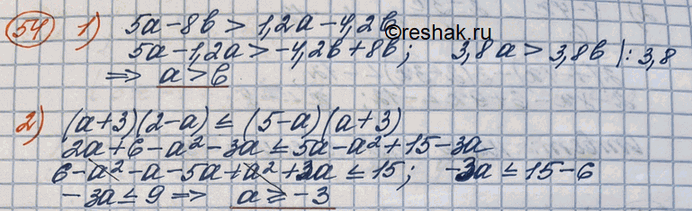 ©reshak.ru
54 1) 5a-8b > 1,2a-4,2b
5a-1,2a > -4,2b+8b; 3,8a > 3,8b |:3,8
⇒ a>b
2) (a+3)(2-a) ≤ (5-a)(a+3)
2a+6-a²-3a ≤ 5a-a²+15-3a
6-a²-a-5a+a²+3a ≤ 15; -3a ≤ 15-6
-3a ≤ 9 ⇒ a ≥ -3